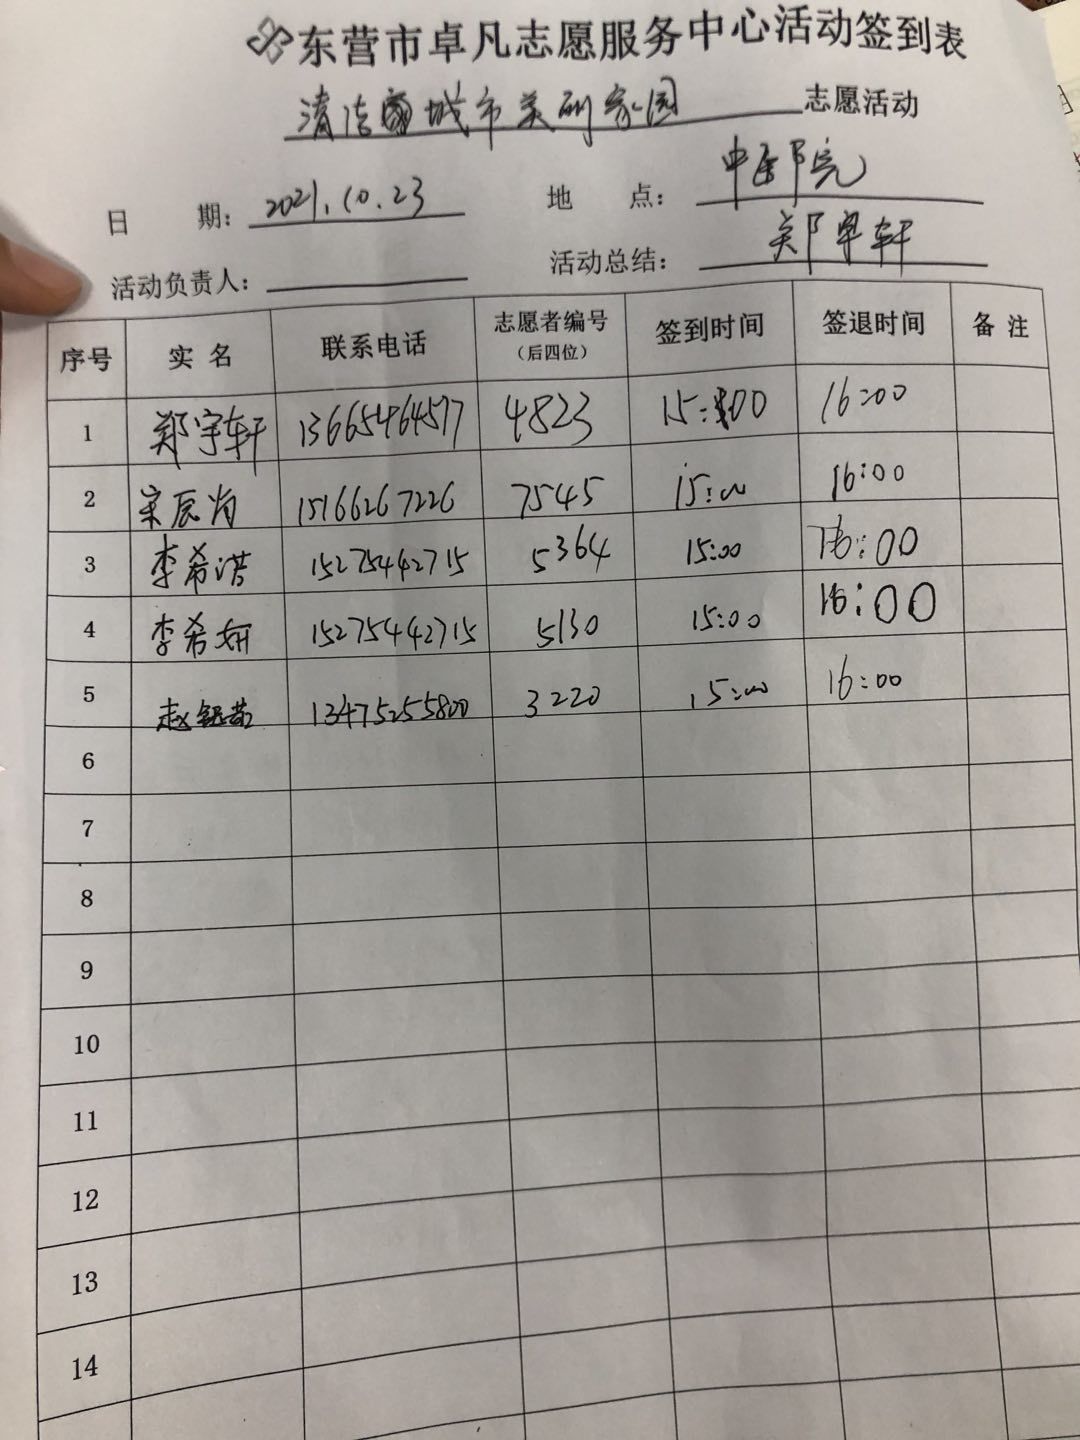 东营市卓凡志愿服务中心活动签到表
清洁城市美丽家园 志愿活动
日 期: 2021.10.23 地 点: 中医院
活动负责人: 活动总结: 郑卓轩
序号 实名 联系电话 志愿者编号 (后四位) 签到时间 签退时间 备注
1 郑宇轩 13665464577 4823 15:00 16:00
2 宋辰 15166267226 7545 15:00 16:00
3 李希 15275442715 5364 15:00 16:00
4 李希妍 15275442715 5130 15:00 16:00
5 赵 13475255800 3220 15:00 16:00
6
7
8
9
10
11
12
13
14